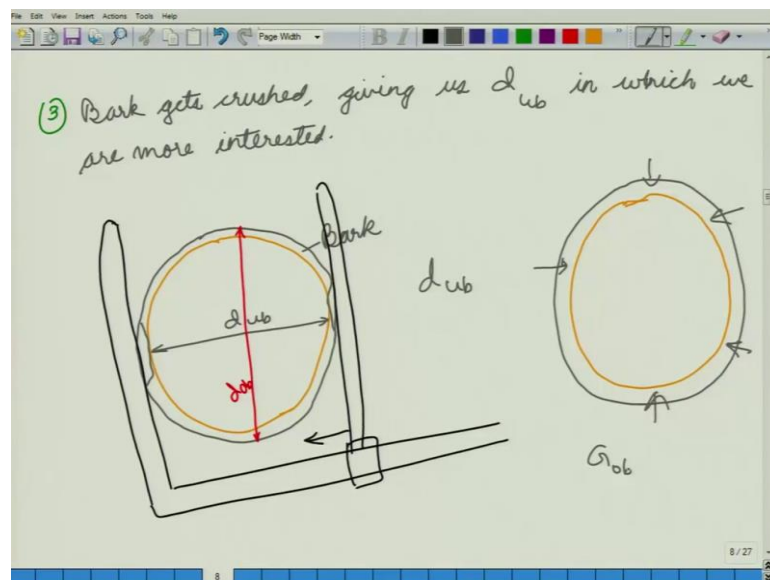 File Edit View Insert Actions Tools Help
Page Width
B I
③ Bark gets crushed, giving us d_ub in which we
are more interested.
Bark
d_ub
d_ob
d_ub
G_ob
8/27
8